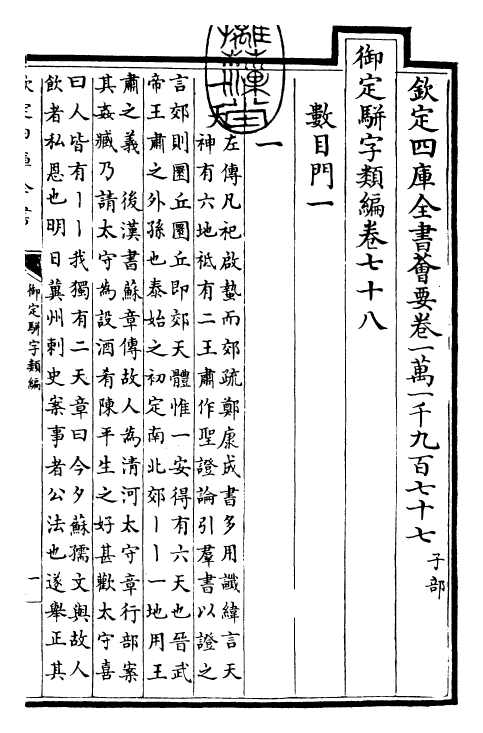 欽定四庫全書薈要卷一萬一千九百七十七 子部
御定駢字類編卷七十八
數目門一
一
天
左傳凡祀啟蟄而郊疏鄭康成書多用讖緯言天
神有六地祇有二王肅作聖證論引羣書以證之
言郊則圜丘圜丘即郊天體惟一安得有六天也晉武
帝王肅之外孫也泰始之初定南北郊丨丨一地用王
肅之義 後漢書蘇章傳故人為清河太守章行部案
其姦臧乃請太守為設酒肴陳平生之好甚歡太守喜
曰人皆有丨丨我獨有二天章曰今夕蘇孺文與故人
飲者私恩也明日冀州刺史案事者公法也遂舉正其
欽定四庫全書
御定駢字類編
一